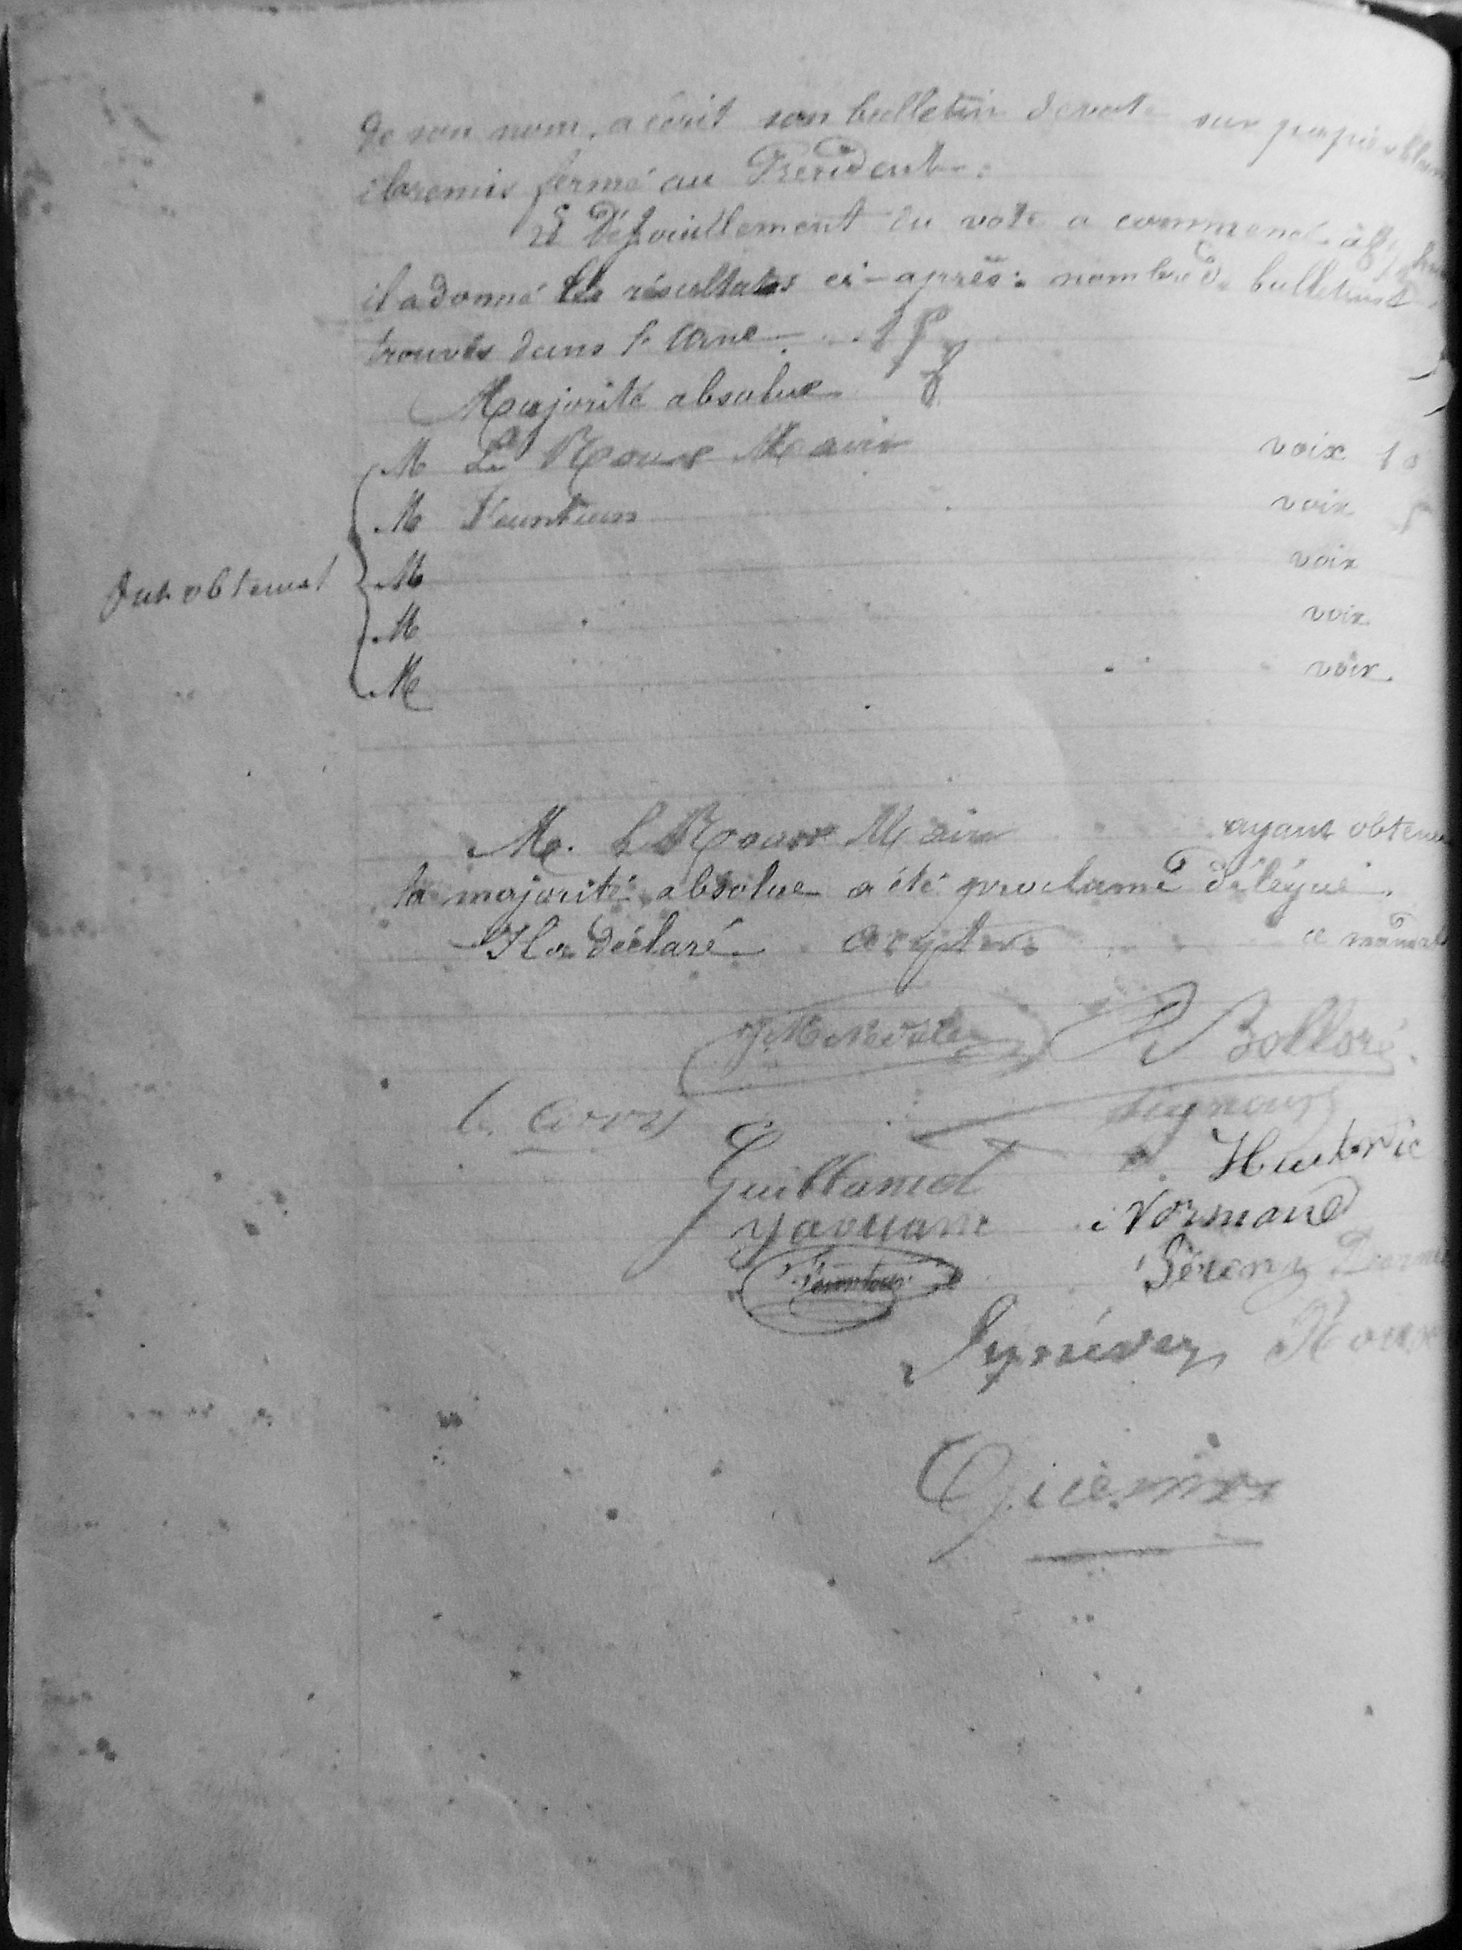 de son nom, a écrit son bulletin de vote sur papier blanc
et l'a remis fermé au Président.
Le Dépouillement du vote a commencé à
il a donné les résultats ci-après: nombre de bulletins
trouvés dans l'urne 15
Majorité absolue 8
M Le Roux Maire voix 10
M voix 5
Ont obtenus M voix
M voix
M voix.
M. Le Roux Maire ayant obtenu
la majorité absolue a été proclamé délégué.
Il a déclaré accepter ce mandat
Bolloré
Le Corre
Huitric
Guillamet
Normand
Yaouanc
Pérennez
Quéméré